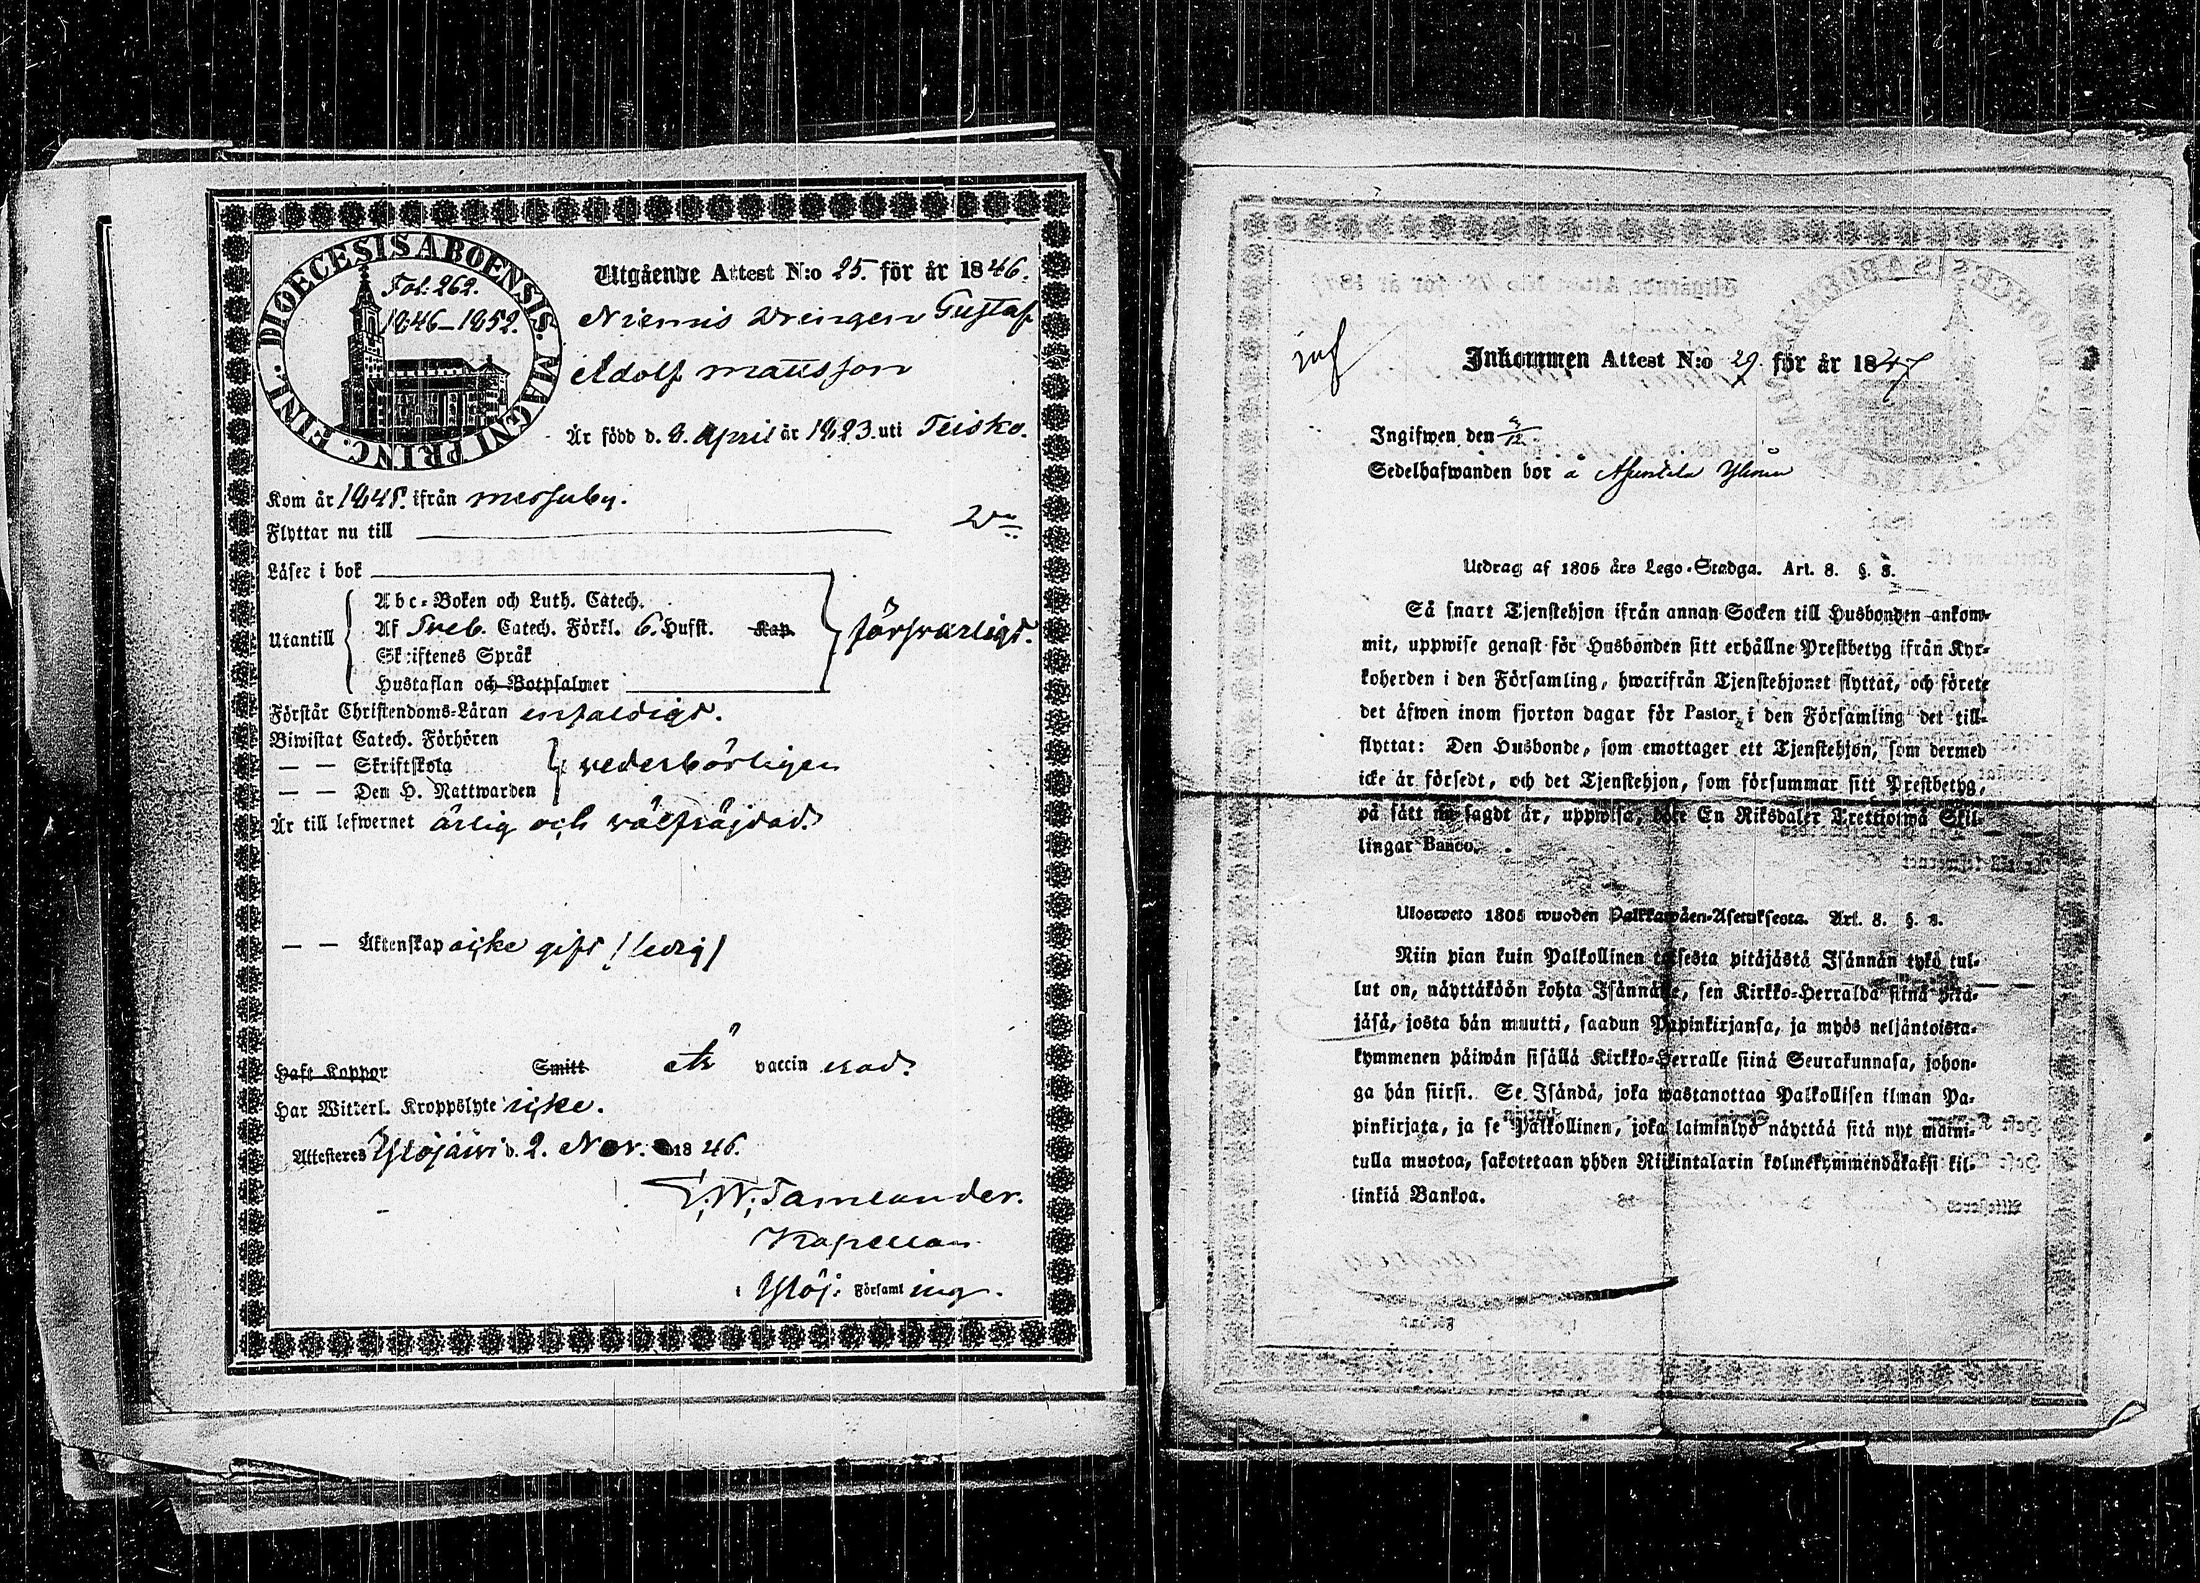 DIOECESIS ABOENSIS. MAGNI PRINC. FINL.
Fol. 262.
1846–1852.
Utgående Attest N:o 25. för år 1846.
Niemis Drengen Gustaf
Adolf Mattsson
Är född d. 8. April år 1823. uti Teisko.
Kom år 1845. ifrån Messuby.
Flyttar nu till
Läser i bok
Utantill
Abc-Boken och Luth. Catech.
Af Sveb. Catech. Förkl. 6. Hufst. Kap.
Skriftenes Språk
Hustaflan och Botpsalmer
försvarligt.
Förstår Christendoms-Läran enfaldigt.
Biwistat Catech. Förhören
— — Skriftskola
— — Den H. Nattwarden
vederbörligen
Är till lefwernet ärlig och välfräjdad.
— — Äktenskap icke gift (ledig)
Haft Koppor Smitt är vaccinerad.
Har Witterl. Kroppslyte icke.
Attesteres Ylöjärvi d. 2. Nov. 1846.
Tamlander.
Kapellan
i Ylöj: Församling.
Inkommen Attest N:o 29. för år 1847
Ingifwen den
Sedelhafwanden bor å
Utdrag af 1805 års Lego-Stadga. Art. 8. §. 8.
Så snart Tjenstehjon ifrån annan Socken till Husbonden ankom-
mit, uppwise genast för Husbonden sitt erhållne Prestbetyg ifrån Kyr-
koherden i den Församling, hwarifrån Tjenstehjonet flyttat, och förete
det äfwen inom fjorton dagar för Pastor i den Församling det till-
flyttat: Den Husbonde, som emottager ett Tjenstehjon, som dermed
icke är försedt, och det Tjenstehjon, som försummar sitt Prestbetyg,
på sätt nu sagdt är, uppwisa, böte En Riksdaler Trettiotwå Skil-
lingar Banco.
Ulosweto 1805 wuoden Palkkawäen-Asetuksesta. Art. 8. §. 8.
Niin pian kuin Palkollinen toisesta pitäjästä Isännän tykö tul-
lut on, näyttäköön kohta Isännälle, sen Kirkko-Herralda siinä pitä-
jäsä, josta hän muutti, saadun Papinkirjansa, ja myös neljäntoista-
kymmenen päiwän sisällä Kirkko-Herralle siinä Seurakunnasa, johon-
ga hän siirsi. Se Isändä, joka wastanottaa Palkollisen ilman Pa-
pinkirjata, ja se Palkollinen, joka laiminlyö näyttää sitä nyt maini-
tulla muotoa, sakotetaan yhden Riikintalarin kolmekymmendäkaksi kil-
linkiä Bankoa.